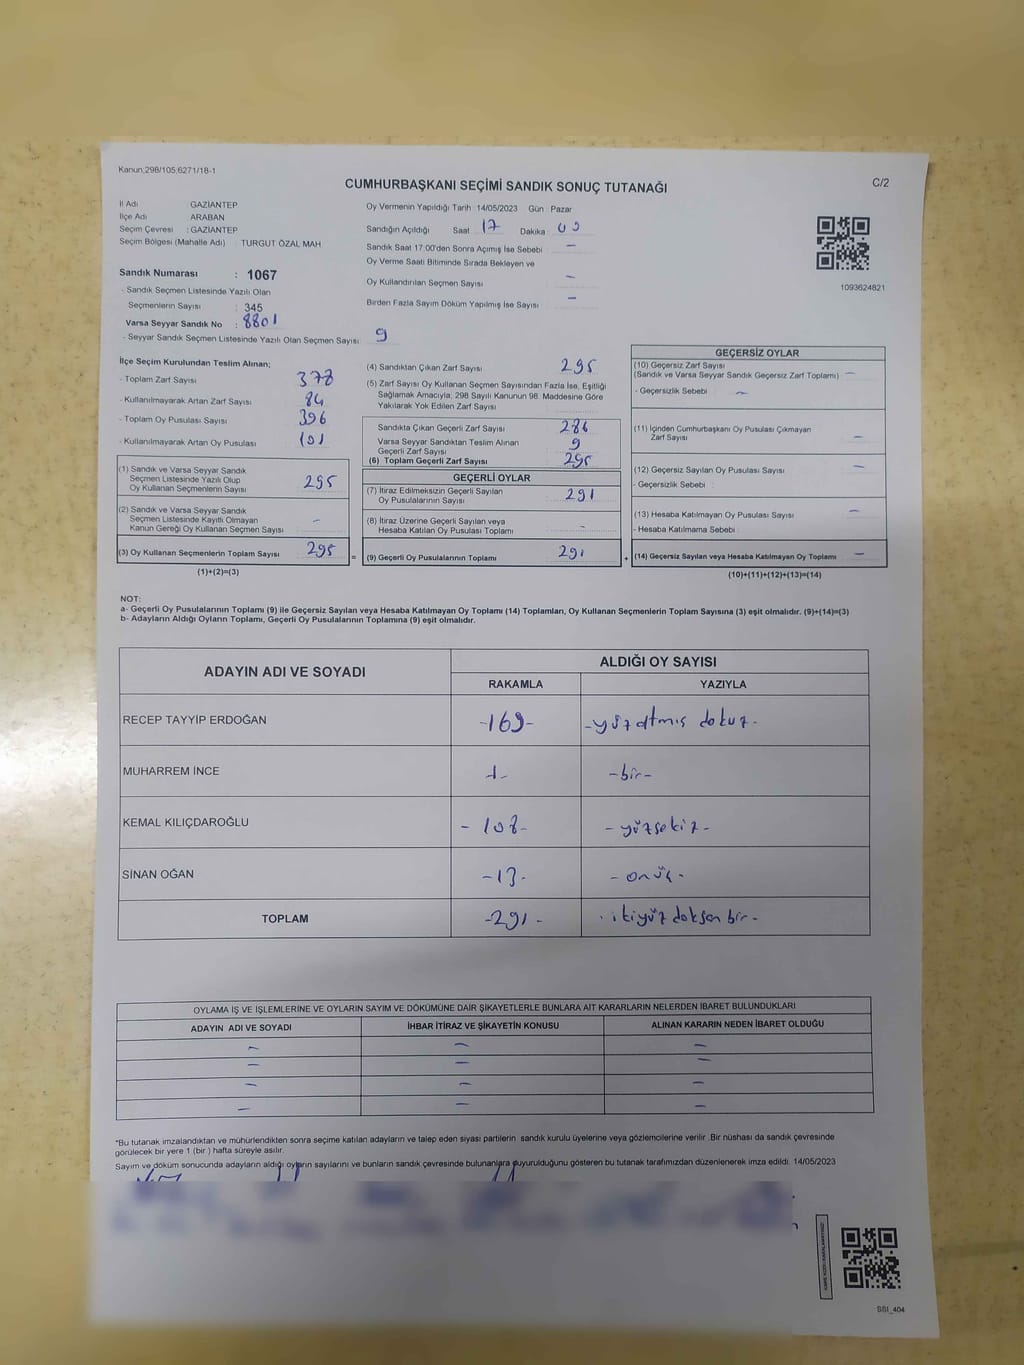 Kanun;298/105;6271/18-1
C/2
CUMHURBAŞKANI SEÇİMİ SANDIK SONUÇ TUTANAĞI
İl Adı GAZİANTEP
İlçe Adı ARABAN
Seçim Çevresi : GAZİANTEP
Seçim Bölgesi (Mahalle Adı) TURGUT ÖZAL MAH
Sandık Numarası : 1067
- Sandık Seçmen Listesinde Yazılı Olan
Seçmenlerin Sayısı : 345
Varsa Seyyar Sandık No : 8801
- Seyyar Sandık Seçmen Listesinde Yazılı Olan Seçmen Sayısı: 9
Oy Vermenin Yapıldığı Tarih :14/05/2023 Gün : Pazar
Sandığın Açıldığı Saat : 17 Dakika :
Sandık Saat 17:00'den Sonra Açımış İse Sebebi : -
Oy Verme Saati Bitiminde Sırada Bekleyen ve
Oy Kullandırılan Seçmen Sayısı : -
Birden Fazla Sayım Döküm Yapılmış İse Sayısı : -
1093624821
İlçe Seçim Kurulundan Teslim Alınan;
- Toplam Zarf Sayısı : 378
- Kullanılmayarak Artan Zarf Sayısı : 84
- Toplam Oy Pusulası Sayısı : 396
- Kullanılmayarak Artan Oy Pusulası : 101
(1) Sandık ve Varsa Seyyar Sandık
Seçmen Listesinde Yazılı Olup
Oy Kullanan Seçmenlerin Sayısı : 295
(2) Sandık ve Varsa Seyyar Sandık
Seçmen Listesinde Kayıtlı Olmayan
Kanun Gereği Oy Kullanan Seçmen Sayısı : -
(3) Oy Kullanan Seçmenlerin Toplam Sayısı : 295
(1)+(2)=(3)
=
(4) Sandıktan Çıkan Zarf Sayısı : 295
(5) Zarf Sayısı Oy Kullanan Seçmen Sayısından Fazla İse, Eşitliği
Sağlamak Amacıyla; 298 Sayılı Kanunun 98. Maddesine Göre
Yakılarak Yok Edilen Zarf Sayısı :
Sandıkta Çıkan Geçerli Zarf Sayısı : 286
Varsa Seyyar Sandıktan Teslim Alınan
Geçerli Zarf Sayısı : 9
(6) Toplam Geçerli Zarf Sayısı : 295
GEÇERLİ OYLAR
(7) İtiraz Edilmeksizin Geçerli Sayılan
Oy Pusulalarının Sayısı : 291
(8) İtiraz Üzerine Geçerli Sayılan veya
Hesaba Katılan Oy Pusulası Toplamı : -
(9) Geçerli Oy Pusulalarının Toplamı : 291
+
GEÇERSİZ OYLAR
(10) Geçersiz Zarf Sayısı
(Sandık ve Varsa Seyyar Sandık Geçersiz Zarf Toplamı) : -
- Geçersizlik Sebebi : -
(11) İçinden Cumhurbaşkanı Oy Pusulası Çıkmayan
Zarf Sayısı : -
(12) Geçersiz Sayılan Oy Pusulası Sayısı : -
- Geçersizlik Sebebi :
(13) Hesaba Katılmayan Oy Pusulası Sayısı : -
- Hesaba Katılmama Sebebi :
(14) Geçersiz Sayılan veya Hesaba Katılmayan Oy Toplamı : -
(10)+(11)+(12)+(13)=(14)
NOT:
a- Geçerli Oy Pusulalarının Toplamı (9) ile Geçersiz Sayılan veya Hesaba Katılmayan Oy Toplamı (14) Toplamları, Oy Kullanan Seçmenlerin Toplam Sayısına (3) eşit olmalıdır. (9)+(14)=(3)
b- Adayların Aldığı Oyların Toplamı, Geçerli Oy Pusulalarının Toplamına (9) eşit olmalıdır.
ADAYIN ADI VE SOYADI
ALDIĞI OY SAYISI
RAKAMLA YAZIYLA
RECEP TAYYİP ERDOĞAN -169- -yüzatmış dokuz-
MUHARREM İNCE -1- -bir-
KEMAL KILIÇDAROĞLU -108- -yüzsekiz-
SİNAN OĞAN -13- -onüç-
TOPLAM -291- -ikiyüz doksan bir-
OYLAMA İŞ VE İŞLEMLERİNE VE OYLARIN SAYIM VE DÖKÜMÜNE DAİR ŞİKAYETLERLE BUNLARA AİT KARARLARIN NELERDEN İBARET BULUNDUKLARI
ADAYIN ADI VE SOYADI İHBAR İTİRAZ VE ŞİKAYETİN KONUSU ALINAN KARARIN NEDEN İBARET OLDUĞU
- - -
- - -
- - -
- - -
*Bu tutanak imzalandıktan ve mühürlendikten sonra seçime katılan adayların ve talep eden siyasi partilerin sandık kurulu üyelerine veya gözlemcilerine verilir .Bir nüshası da sandık çevresinde
görülecek bir yere 1 (bir ) hafta süreyle asılır.
Sayım ve döküm sonucunda adayların aldığı oyların sayılarını ve bunların sandık çevresinde bulunanlara duyurulduğunu gösteren bu tutanak tarafımızdan düzenlenerek imza edildi. 14/05/2023
SSI_404